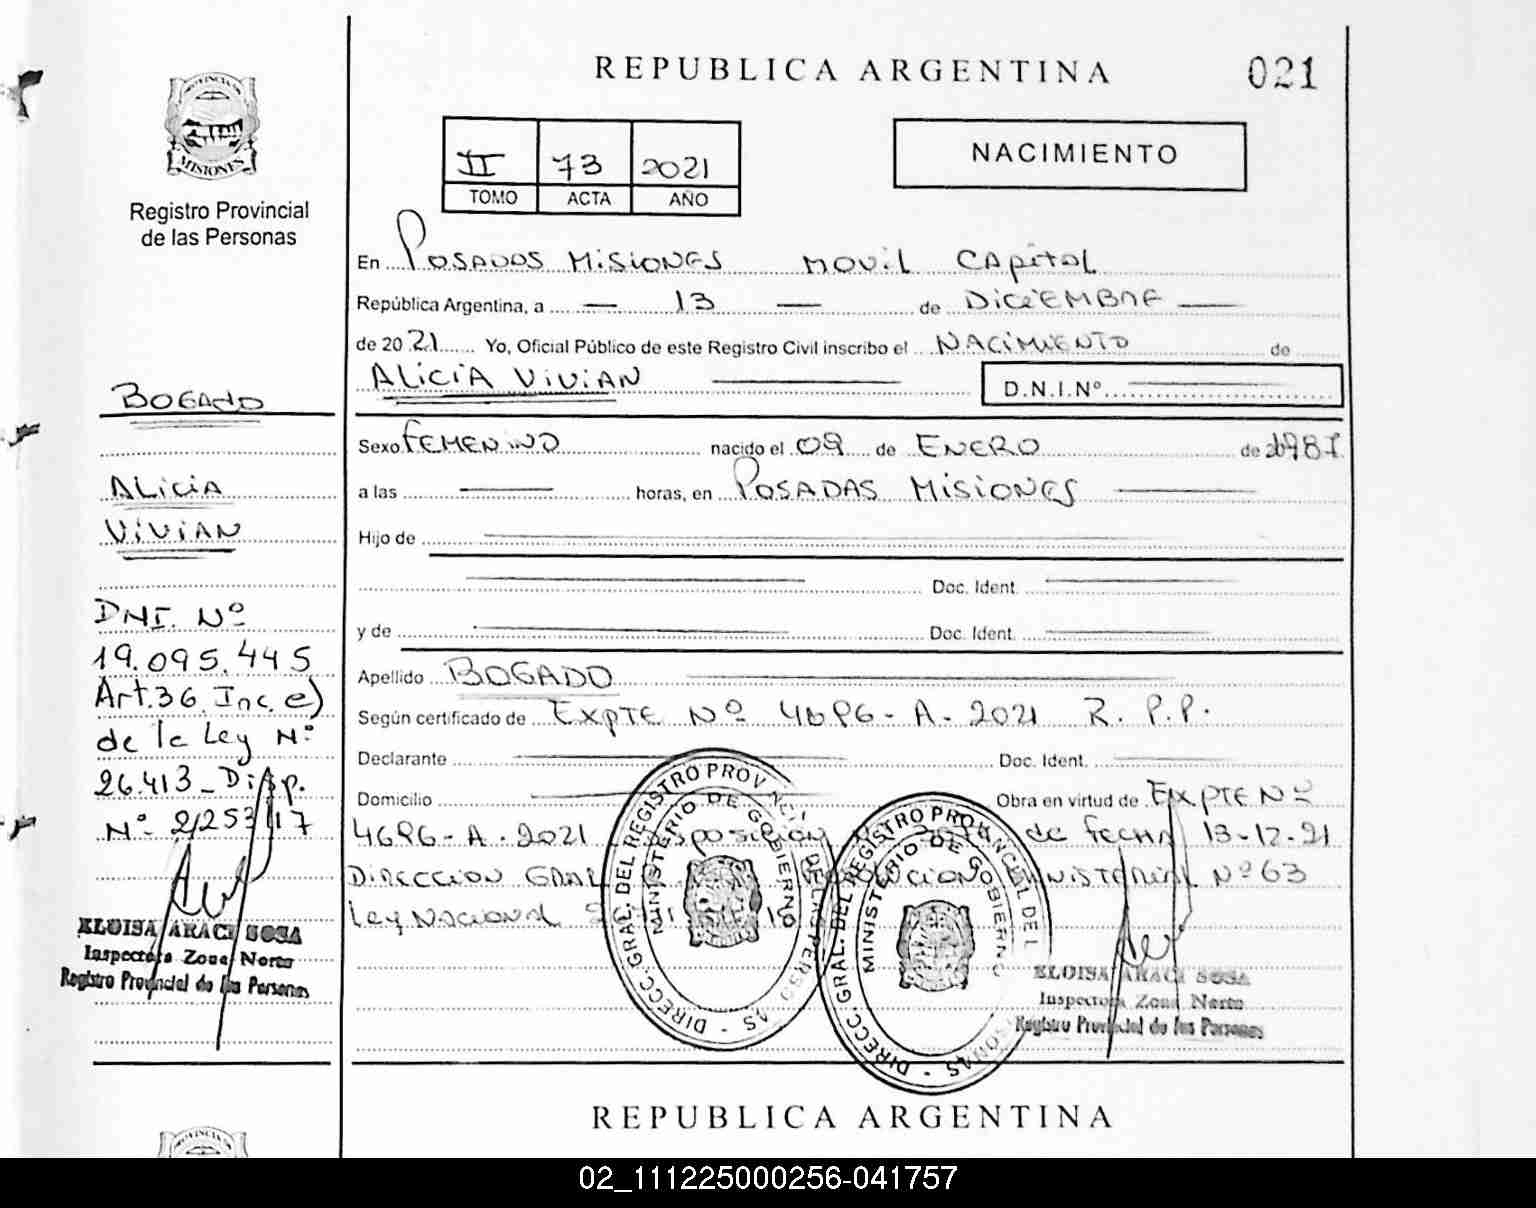 REPUBLICA ARGENTINA
021
PROVINCIA DE
MISIONES
Registro Provincial
de las Personas
II 73 2021
TOMO ACTA AÑO
NACIMIENTO
En POSADAS MISIONES MOVIL CAPITAL
República Argentina, a 13 de DICIEMBRE
de 2021 Yo, Oficial Público de este Registro Civil inscribo el NACIMIENTO de
ALICIA VIVIAN D.N.I.Nº
Sexo FEMENINO nacido el 09 de ENERO de 1987
a las horas, en POSADAS MISIONES
Hijo de
Doc. Ident.
y de Doc. Ident.
Apellido BOGADO
Según certificado de EXPTE Nº 4696-A-2021 R.P.P.
Declarante Doc. Ident.
Domicilio Obra en virtud de EXPTE Nº
4696-A-2021 Disposición de FECHA 13-12-21
DIRECCION GRAL RESOLUCION MINISTERIAL Nº 63
Ley NACIONAL
BOGADO
ALICIA
VIVIAN
DNI. Nº
19.095.445
Art.36 Inc. e)
de la Ley Nº
26.413 - Disp.
Nº 2/253/17
ELOISA ARACI SOSA
Inspectora Zona Norte
Registro Provincial de las Personas
DIRECC. GRAL. DEL REGISTRO PROVINCIAL DE LAS PERSONAS
MINISTERIO DE GOBIERNO
DIRECC. GRAL. DEL REGISTRO PROVINCIAL DE LAS PERSONAS
MINISTERIO DE GOBIERNO
ELOISA ARACI SOSA
Inspectora Zona Norte
Registro Provincial de las Personas
REPUBLICA ARGENTINA
02_111225000256-041757